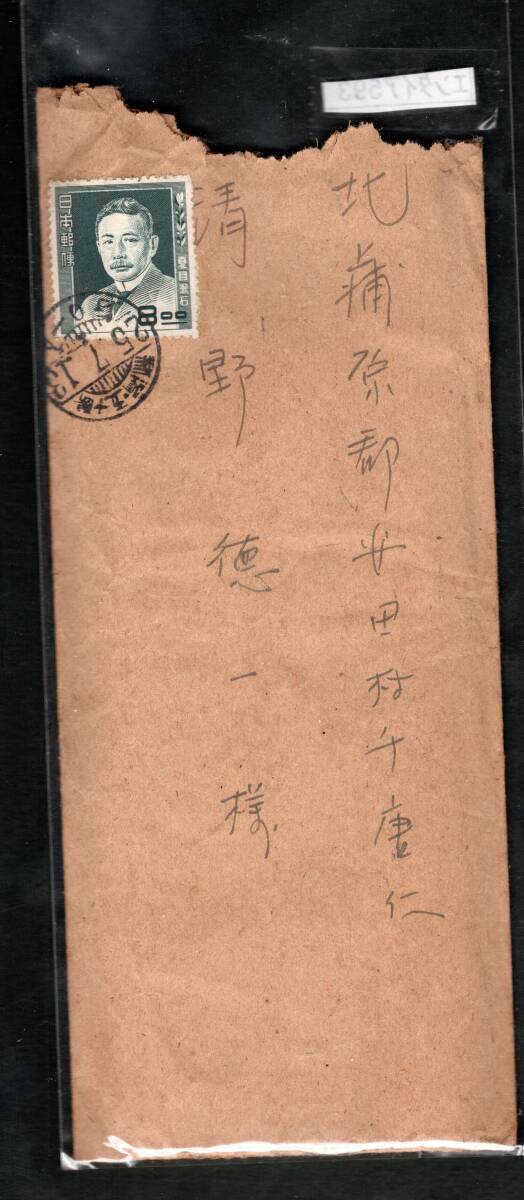 北蒲原郡安田村千唐仁
清野徳一様
日本郵便
夏目漱石
8.00
25.7.1
エンタイア593